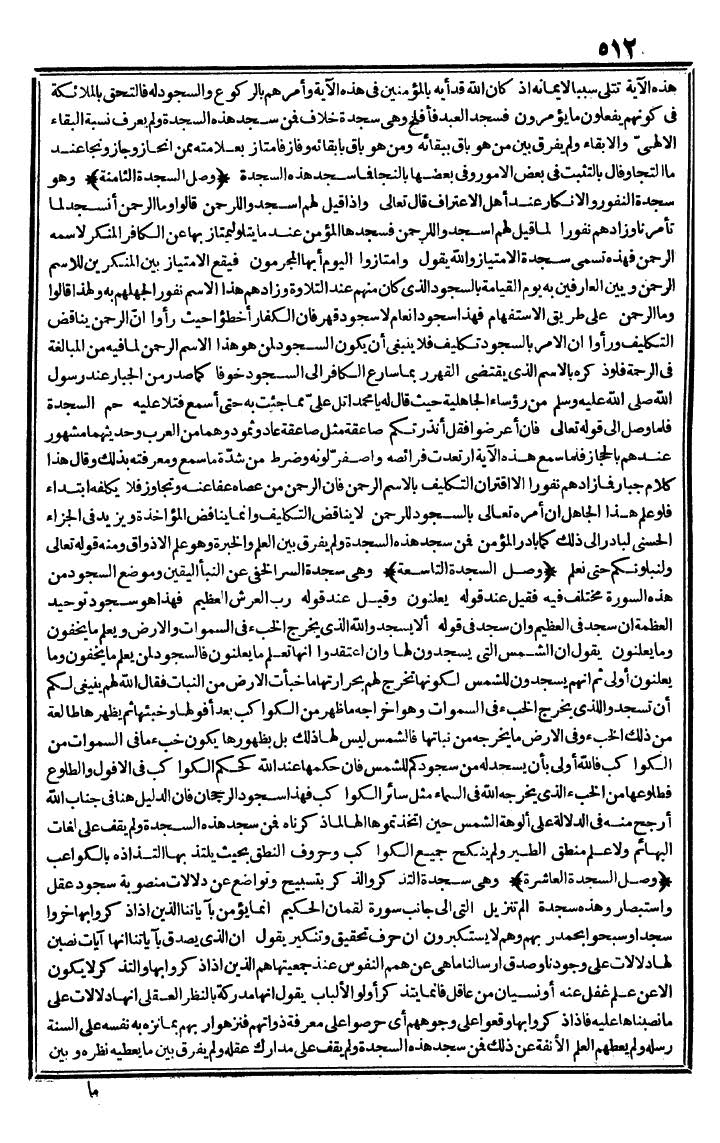 ٥١٢
هذه الآية تتلى سببا لايمانه اذ كان الله قد أيه بالمؤمنين فى هذه الآية وأمرهم بالركوع والسجود له فالتحق بالملائكة
فى كونهم يفعلون ما يؤمرون فسجد العبد فأفلح وهى سجدة خلاف فمن سجد هذه السجدة ولم يعرف نسبة البقاء
الالهىّ والابقاء ولم يفرق بين من هو باق ببقائه ومن هو باق بابقائه وفاز فامتاز بعلامته ممن انحاز وجاز ونجا عند
ما التجا وقال بالتثبت فى بعض الامور وفى بعضها بالنجا فما سجد هذه السجدة ﴿وصل السجدة الثامنة﴾ وهو
سجدة النفور والانكار عند أهل الاعتراف قال تعالى واذا قيل لهم اسجدوا للرحمن قالوا وما الرحمن أنسجد لما
تأمرنا وزادهم نفورا لما قيل لهم اسجدوا للرحمن فسجدها المؤمن عند ما يتلو ليمتاز بها عن الكافر المنكر لاسمه
الرحمن فهذه تسمى سجدة الامتياز والله يقول وامتازوا اليوم أيها المجرمون فيقع الامتياز بين المنكرين للاسم
الرحمن وبين العارفين به يوم القيامة بالسجود الذى كان منهم عند التلاوة وزادهم هذا الاسم نفور الجهلهم به ولهذا قالوا
وما الرحمن على طريق الاستفهام فهذا سجود انعام لا سجود قهر فان الكفار أخطؤا حيث رأوا انّ الرحمن يناقض
التكليف ورأوا ان الامر بالسجود تكليف فلا ينبغى أن يكون السجود لمن هو هذا الاسم الرحمن لما فيه من المبالغة
فى الرحمة فلو ذكره بالاسم الذى يقتضى القهر ربما سارع الكافر الى السجود خوفا كما صدر من الجبار عند رسول
الله صلى الله عليه وسلم من رؤساء الجاهلية حيث قال له يا محمد اتل علىّ مما جئت به حتى أسمع فتلا عليه حم السجدة
فلما وصل الى قوله تعالى فان أعرضوا فقل أنذرتكم صاعقة مثل صاعقة عاد وثمود وهما من العرب وحديثهما مشهور
عندهم بالحجاز فلما سمع هذه الآية ارتعدت فرائصه واصفرّ لونه وضرط من شدّة ما سمع ومعرفته بذلك وقال هذا
كلام جبار فما زادهم نفورا الا اقتران التكليف بالاسم الرحمن فان الرحمن من عصاه عفا عنه وتجاوز فلا يكلفه ابتداء
فلو علم هذا الجاهل ان أمره تعالى بالسجود للرحمن لا يناقض التكليف وانما يناقض المؤاخذة ويزيد فى الجزاء
الحسنى لبادر الى ذلك كما بادر المؤمن فمن سجد هذه السجدة ولم يفرق بين العلم والخبرة وهو علم الاذواق ومنه قوله تعالى
ولنبلونكم حتى نعلم ﴿وصل السجدة التاسعة﴾ وهى سجدة السر الخفى عن النبأ اليقين وموضع السجود من
هذه السورة مختلف فيه فقيل عند قوله يعلنون وقيل عند قوله رب العرش العظيم فهذا هو سجود توحيد
العظمة ان سجد فى العظيم وان سجد فى قوله ألا يسجدوا لله الذى يخرج الخبء فى السموات والارض ويعلم ما يخفون
وما يعلنون يقول ان الشمس التى يسجدون لها وان اعتقدوا انها تعلم ما يعلنون فالسجود لمن يعلم ما يخفون وما
يعلنون أولى ثم انهم يسجدون للشمس لكونها تخرج لهم بحرارتها ما خبأت الارض من النبات فقال الله لهم ينبغى لكم
أن تسجدوا للذى يخرج الخبء فى السموات وهو اخراجه ما ظهر من الكواكب بعد أفولها وخبئها ثم يظهرها طالعة
من ذلك الخبء وفى الارض ما يخرجه من نباتها فالشمس ليس لها ذلك بل بظهورها يكون خبء ما فى السموات من
الكواكب فالله أولى بأن يسجد له من سجودكم للشمس فان حكمها عند الله كحكم الكواكب فى الافول والطلوع
فطلوعها من الخبء الذى يخرجه الله فى السماء مثل سائر الكواكب فهذا سجود الرجحان فان الدليل هنا فى جناب الله
أرجح منه فى الدلالة على ألوهة الشمس حين اتخذتموها الها لما ذكرناه فمن سجد هذه السجدة ولم يقف على لغات
البهائم ولا علم منطق الطير ولم ينكح جميع الكواكب وحروف النطق بحيث يلتذ بها التذاذه بالكواعب
﴿وصل السجدة العاشرة﴾ وهى سجدة التذكر والذكر بتسبيح وتواضع عن دلالات منصوبة سجود عقل
واستبصار وهذه سجدة الم تنزيل التى الى جانب سورة لقمان الحكيم انما يؤمن بآياتنا الذين اذا ذكروا بها خروا
سجدا وسبحوا بحمد ربهم وهم لا يستكبرون ان حرف تحقيق وتنكير يقول ان الذى يصدق بآياتنا انها آيات نصبن
لها دلالات على وجودنا وصدق ارسالنا ما هى عن همم النفوس عند جمعيتها هم الذين اذا ذكروا بها والتذكر لا يكون
الا عن علم غفل عنه أو نسيان من عاقل فانما يتذكر أولو الألباب يقول انها مدركة بالنظر العقلى انها دلالات على
ما نصبناها عليه فاذا ذكروا بها وقعوا على وجوههم أى حرصوا على معرفة ذواتهم فنزهوا ربهم بما نزه به نفسه على السنة
رسله ولم يعطهم العلم الأنفة عن ذلك فمن سجد هذه السجدة ولم يقف على مدارك عقله ولم يفرق بين ما يعطيه نظره وبين
ما